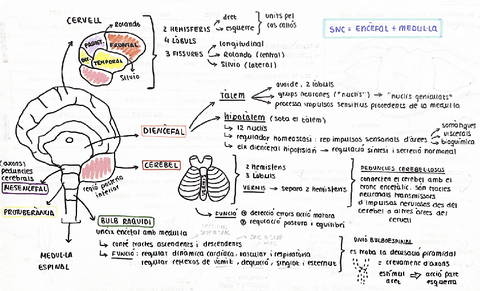 CERVELL
Rolando
PARIET.
FRONTAL
OCC
TEMPORAL
Silvio
2 HEMISFERIS
dret
esquerre
units pel
cos callós
4 LÒBULS
3 FISSURES
longitudinal
Rolando (central)
Silvio (lateral)
SNC = ENCÈFAL + MEDUL·LA
DIENCÈFAL
TÀLEM
ovoide, 2 lòbuls
grups neurones ("nuclis") → "nuclis geniculats"
processa impulsos sensitius procedents de la medul·la
HIPOTÀLEM (sota el tàlem)
12 nuclis
regulador homeostasi: rep impulsos sensorials d'àrees
somàtiques
viscerals
bioquímica
eix diencèfal hipotàlem → regulació síntesi i secreció hormonal
CEREBEL
regió posterior
inferior
2 hemisferis
3 lòbuls
VERMIS → separa 2 hemisferis
FUNCIÓ
detecció errors acció motora
regulació postura i equilibri
PEDUNCLES CEREBEL·LOSOS
connecten el cerebel amb el
tronc encefàlic. són tractes
neuronals transmissors
d'impulsos nerviosos des del
cerebel a altres àrees del
cervell
(axons)
peduncles
cerebrals
MESENCÈFAL
PROTUBERÀNCIA
MEDUL·LA
ESPINAL
BULB RAQUIDI
uneix encèfal amb medul·la
conté tractes ascendents i descendents
FUNCIÓ: regular dinàmica cardíaca, vascular i respiratòria
regular reflexos de vòmit, deglució, singlot i esternut
UNIÓ BULBOESPINAL
es troba la decusació piramidal
= creuament d'axons
estímul → acció part
dret esquerra